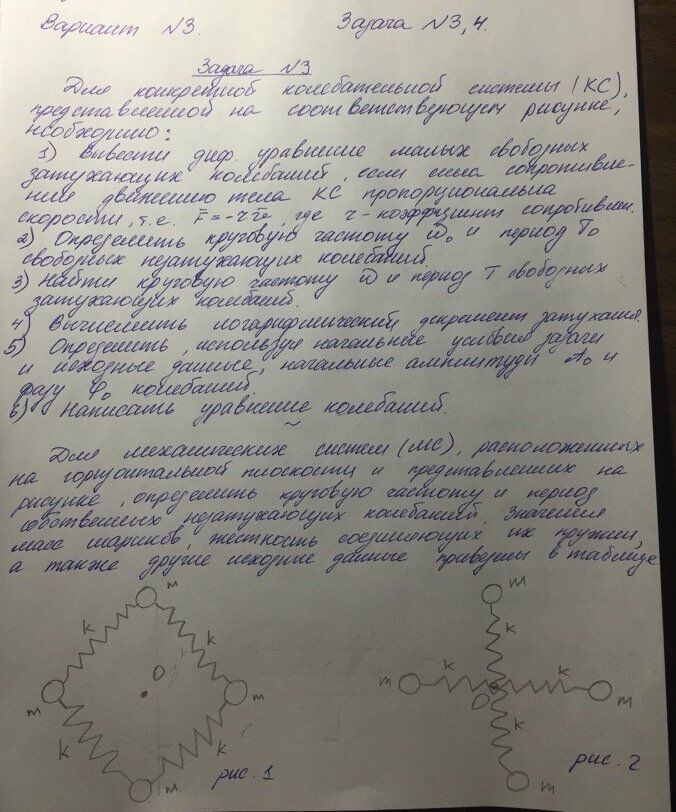 Вариант №3. Задача №3,4.
Задача №3
Для конкретной колебательной системы (КС),
представленной на соответствующем рисунке,
необходимо:
1) Вывести диф. уравнение малых свободных
затухающих колебаний, если сила сопротивле-
ния движению тела КС пропорциональна
скорости, т.е. F̅ = -rv̅, где r - коэффициент сопротивлен.
2) Определить круговую частоту ω₀ и период T₀
свободных незатухающих колебаний.
3) Найти круговую частоту ω и период T свободных
затухающих колебаний.
4) Вычислить логарифмический декремент затухания.
5) Определить, используя начальные условия задачи
и исходные данные, начальные амплитуды A₀ и
фазу φ₀ колебаний.
6) Написать уравнение колебаний.
~
Для механических систем (МС), расположенных
на горизонтальной плоскости и представленных на
рисунке, определить круговую частоту и период
собственных незатухающих колебаний. Значения
масс шариков, жесткость соединяющих их пружин,
а также другие исходные данные приведены в таблице
m
k
k
m
O
m
k
k
m
рис. 1
m
k
k
k
m
O
m
k
m
рис. 2